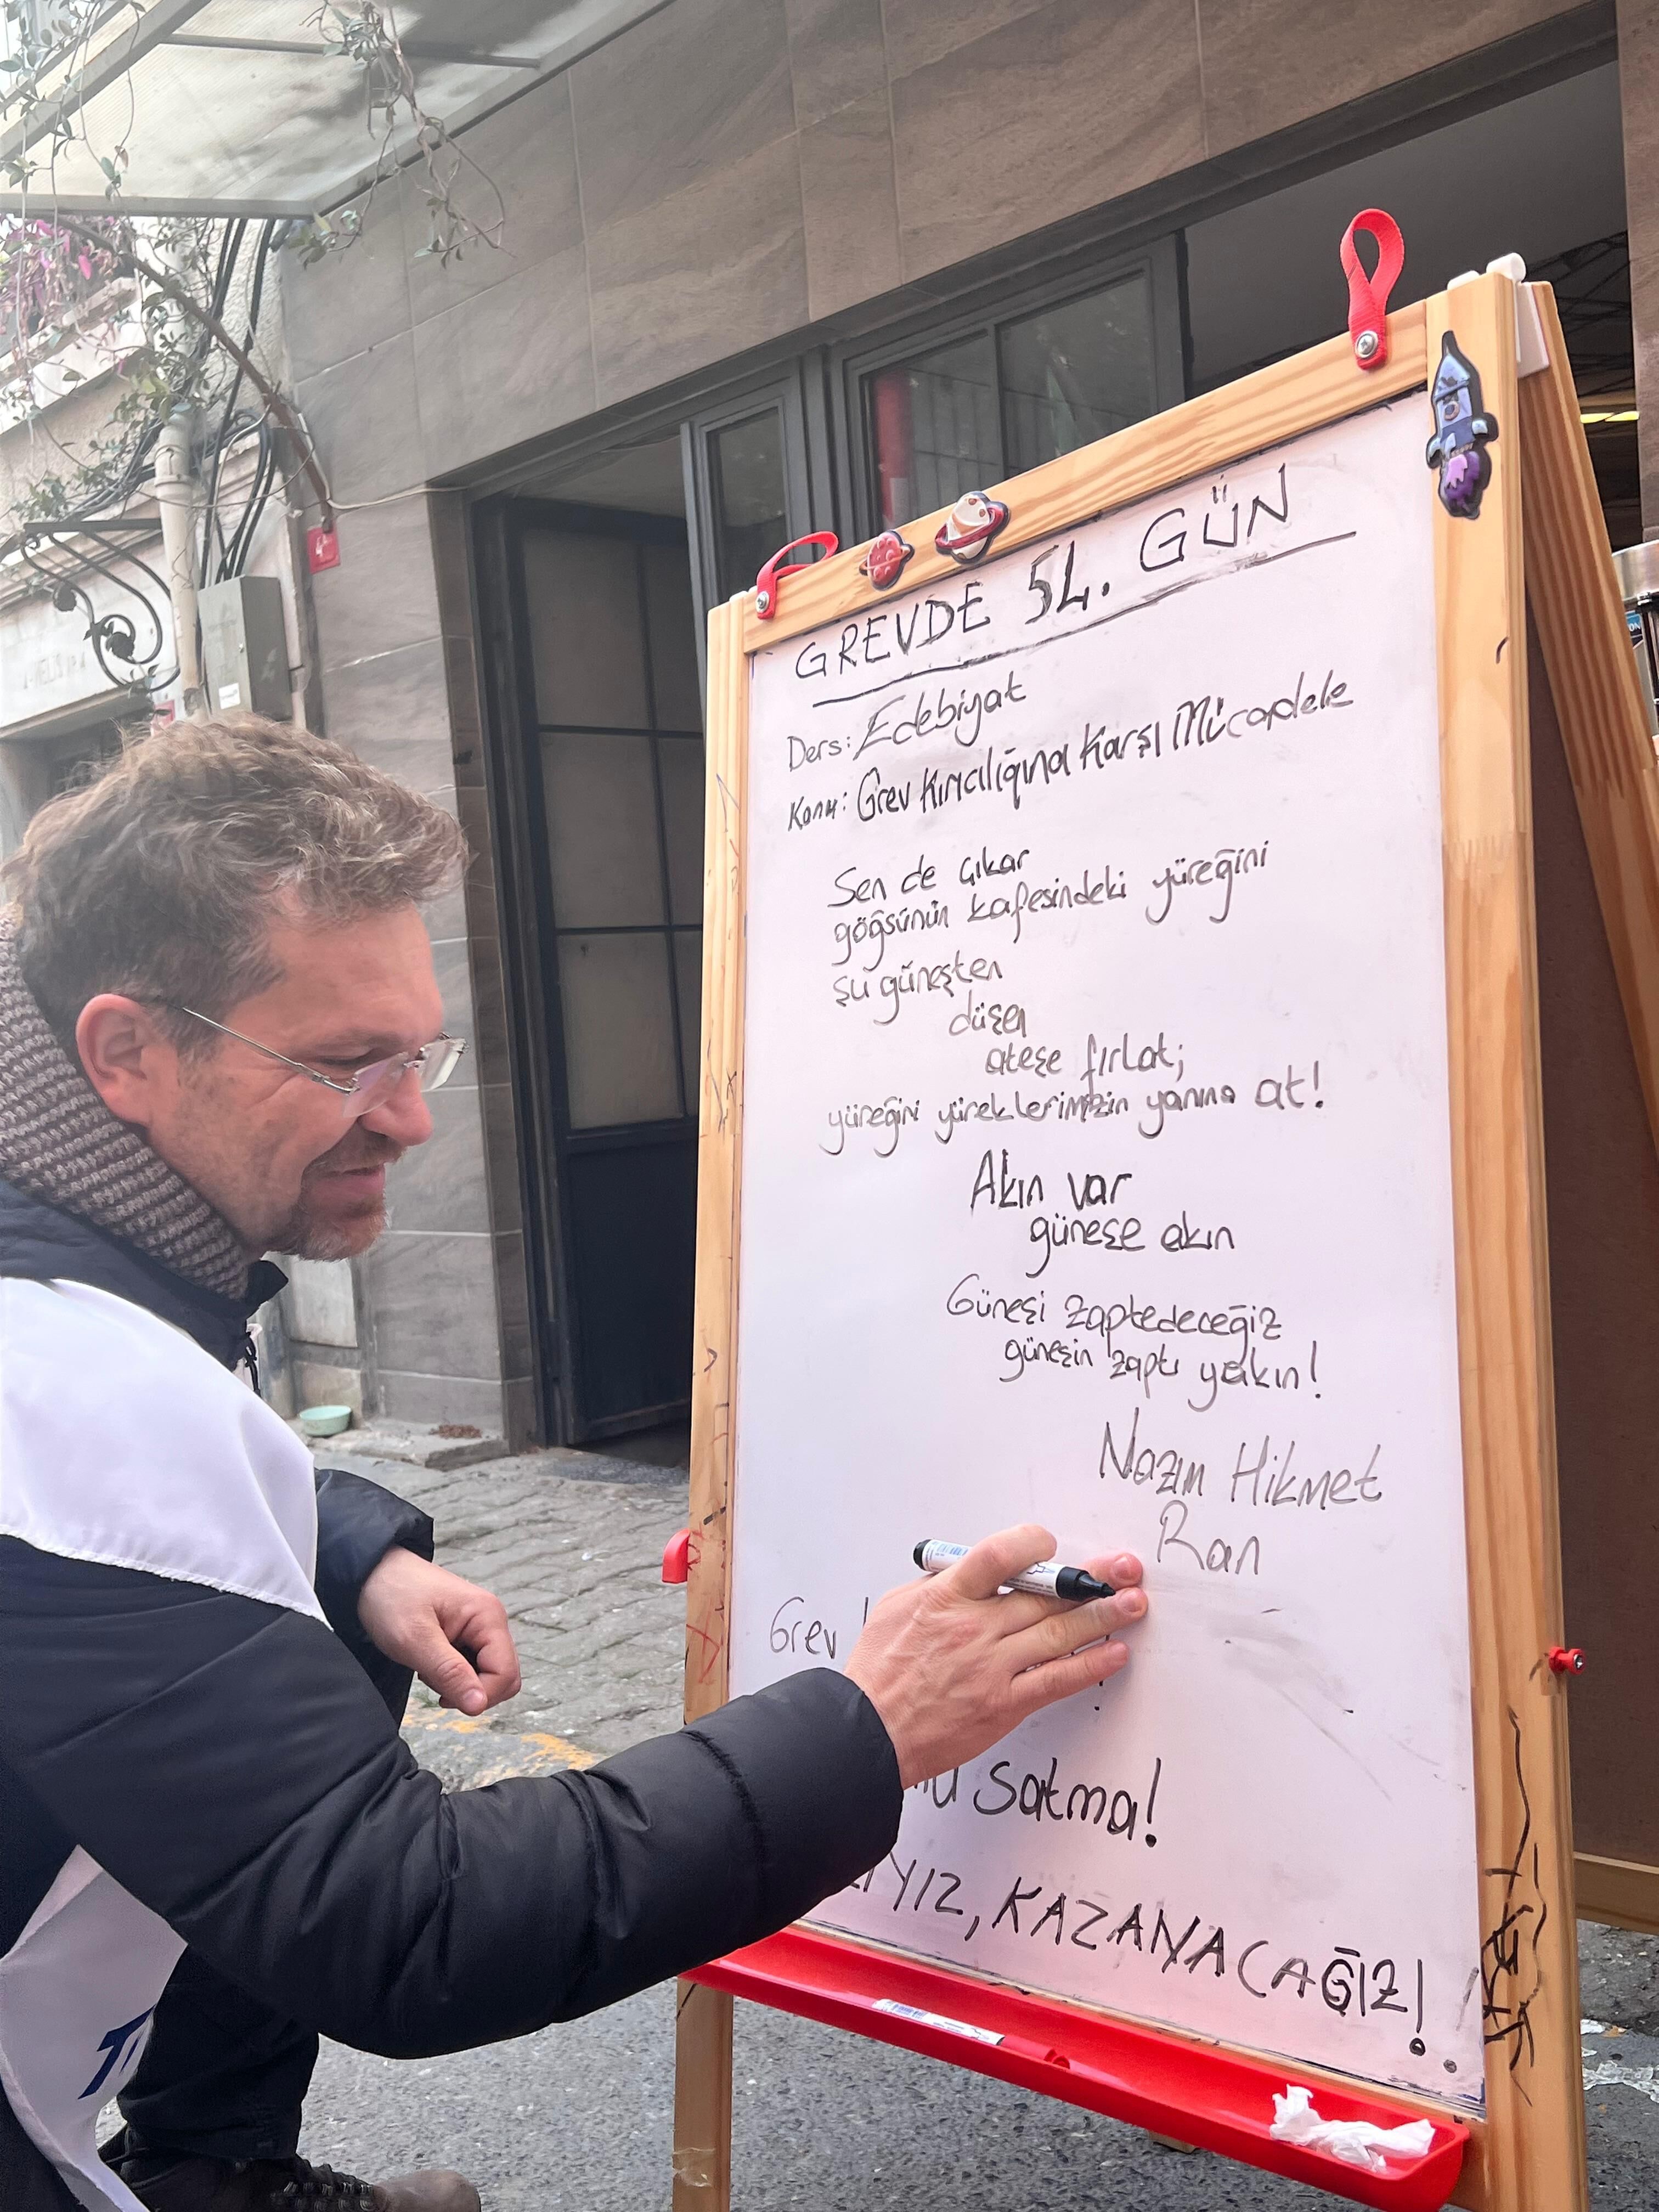 GREVDE 54. GÜN
Ders: Edebiyat
Konu: Grev Kırıcılığına Karşı Mücadele
Sen de çıkar
göğsünün kafesindeki yüreğini
şu güneşten
düşen
ateşe fırlat;
yüreğini yüreklerimizin yanına at!
Akın var
güneşe akın
Güneşi zaptedeceğiz
güneşin zaptı yakın!
Nazım Hikmet
Ran
Grev
Satma!
KAZANACAĞIZ!